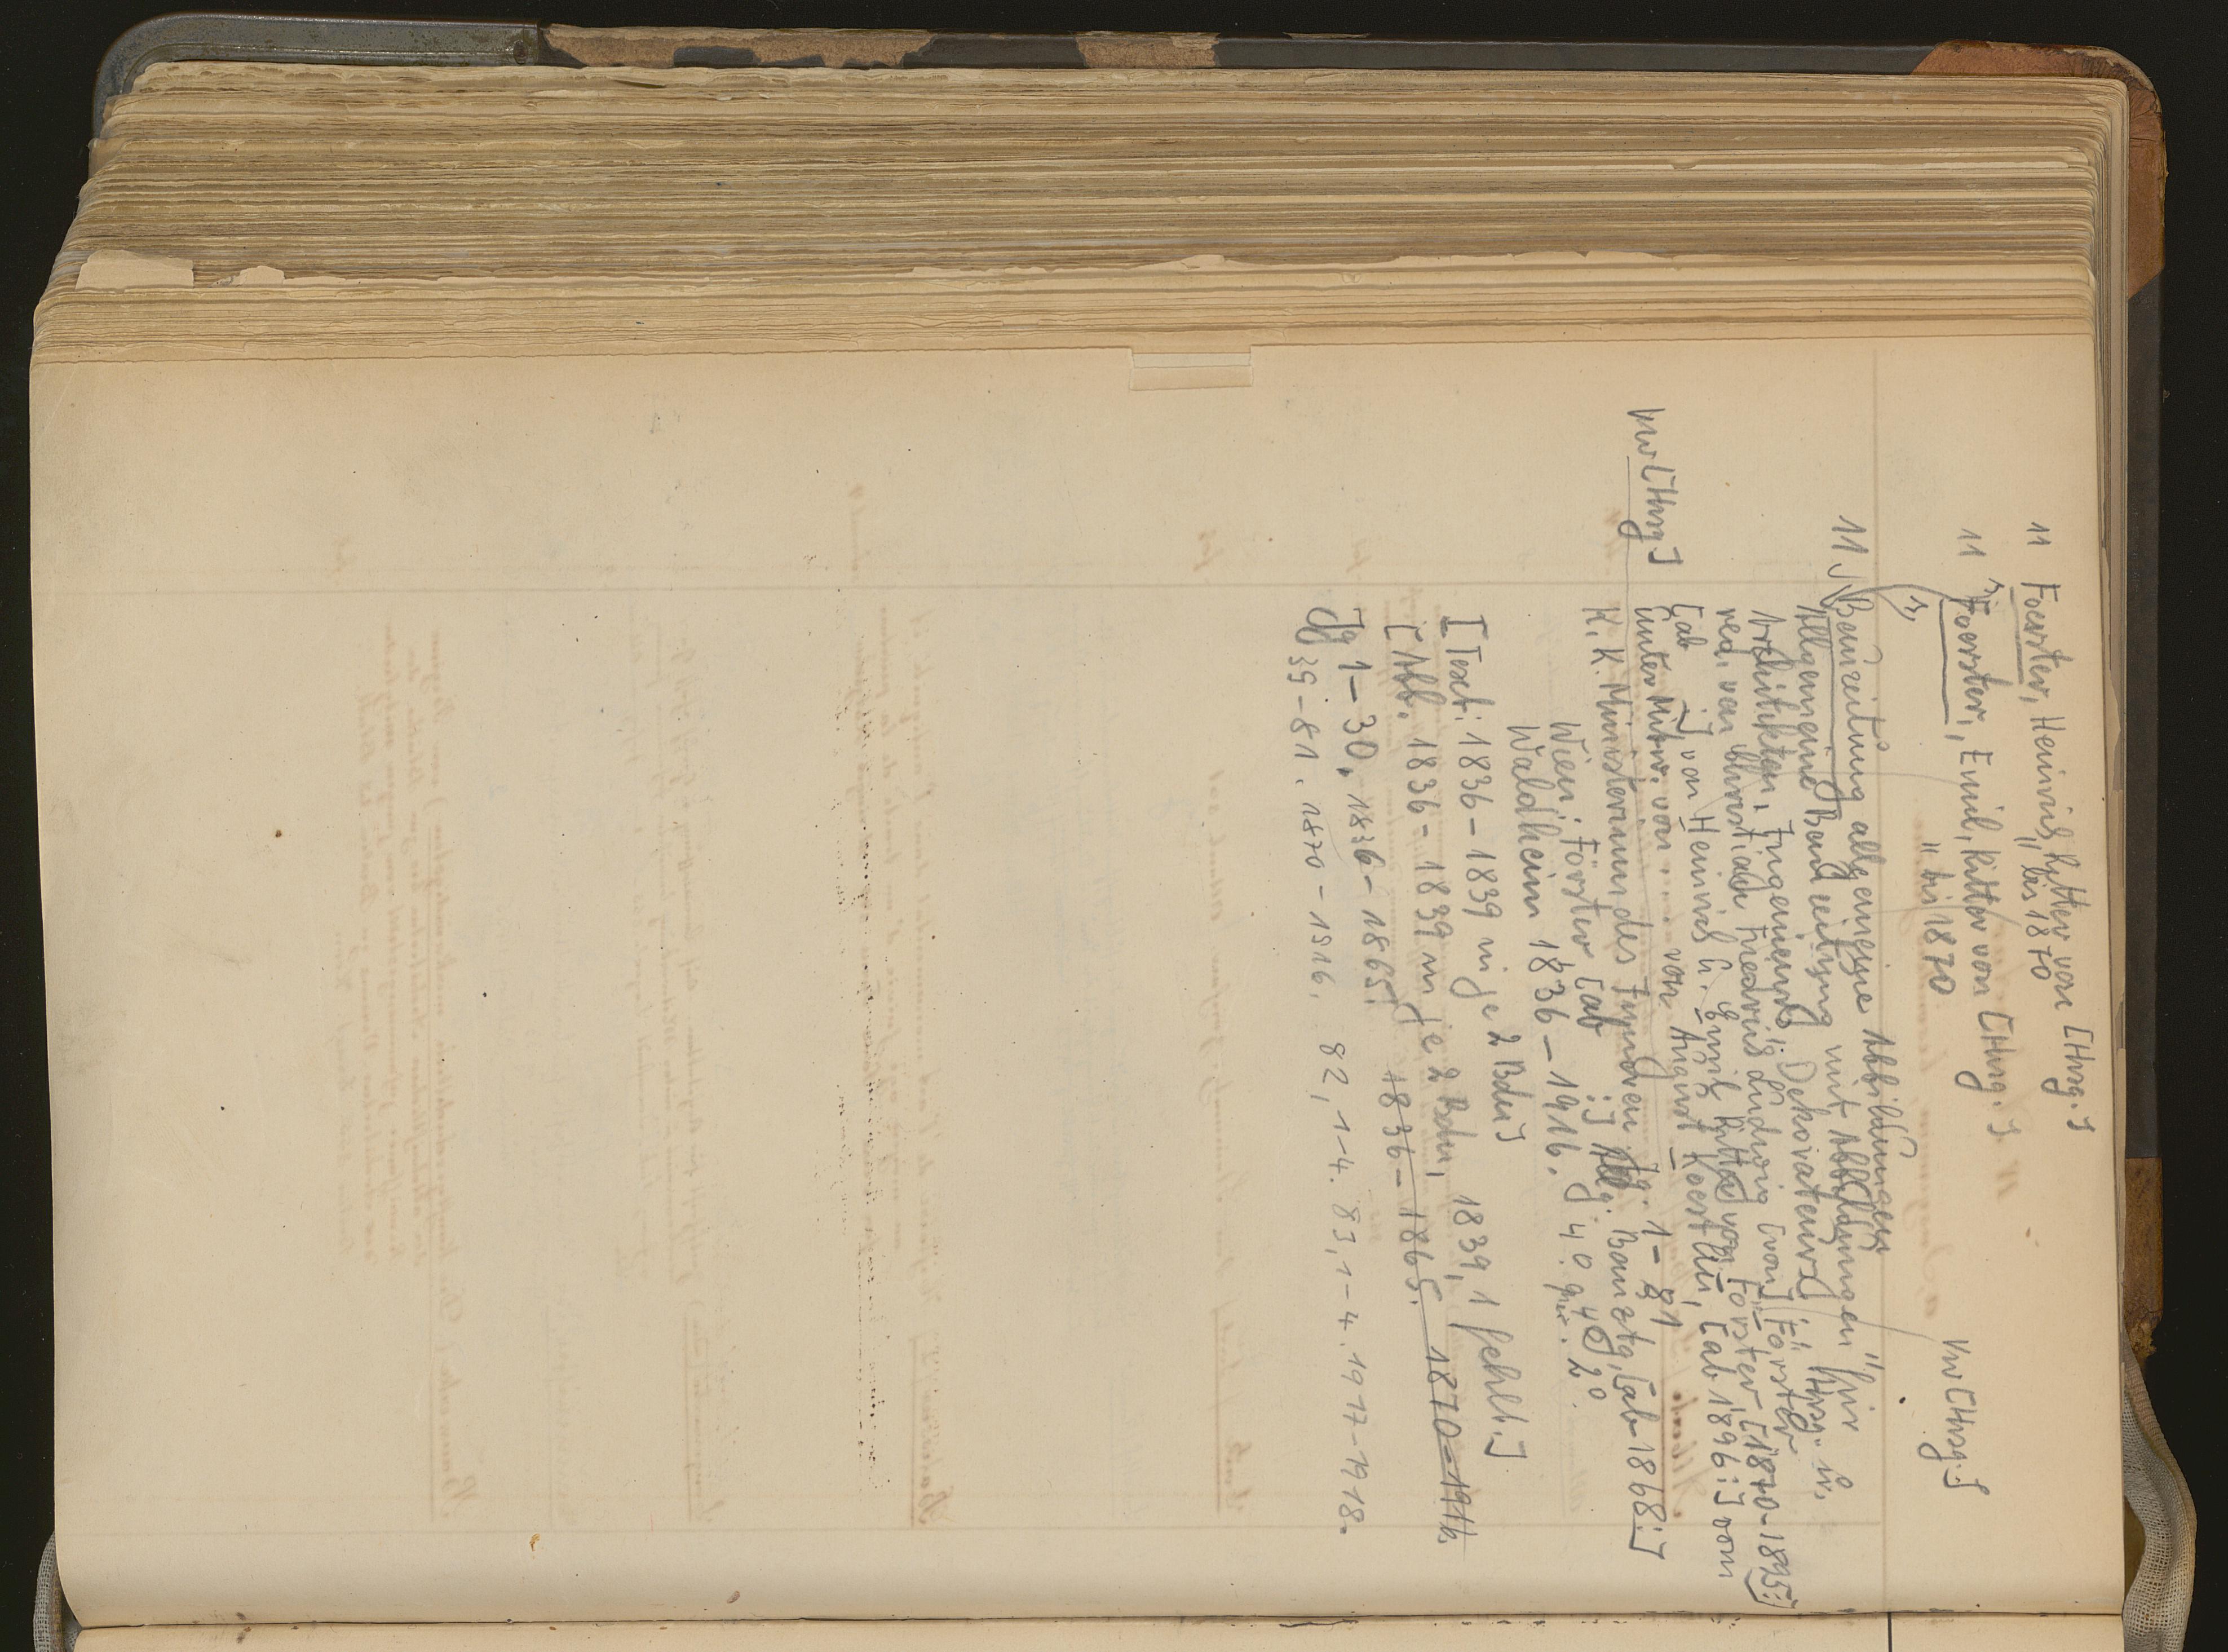 " Foerster, Heinrich, Ritter von [Hrsg.]
" bis 1870
" Foerster, Emil, Ritter von [Hrsg.]
" bis 1870
Vw [Hrsg.]
11) Bauzeitung allgemeine Abbildungen
Allgemeine Bauzeitung mit Abbildungen "für
Architekten, Ingenieurs, Dekorateurs" Hrsg. u.
red. von Christian Friedrich Ludwig [von] Förster
[ab :] von Heinrich u. Emil Ritter von Förster [1870-1895:]
unter Mitw. von August Koestlin, [ab 1896:] von
Vw [Hrsg.]
K. K. Ministerium des Innern Jg. 1-81
Wien: Förster [ab :] Allg. Bauztg. [ab 1868:]
Waldheim 1836-1916. 4° 2°
[Text: 1836-1839 in je 2 Bdn]
[Abb. 1836-1839 in je 2 Bdn, 1839,1 fehlt.]
1836-1865. 1870-1916.
Jg 1-30. 1836-1865.
35-81. 1870-1916. 82,1-4. 83,1-4. 1917-1918.